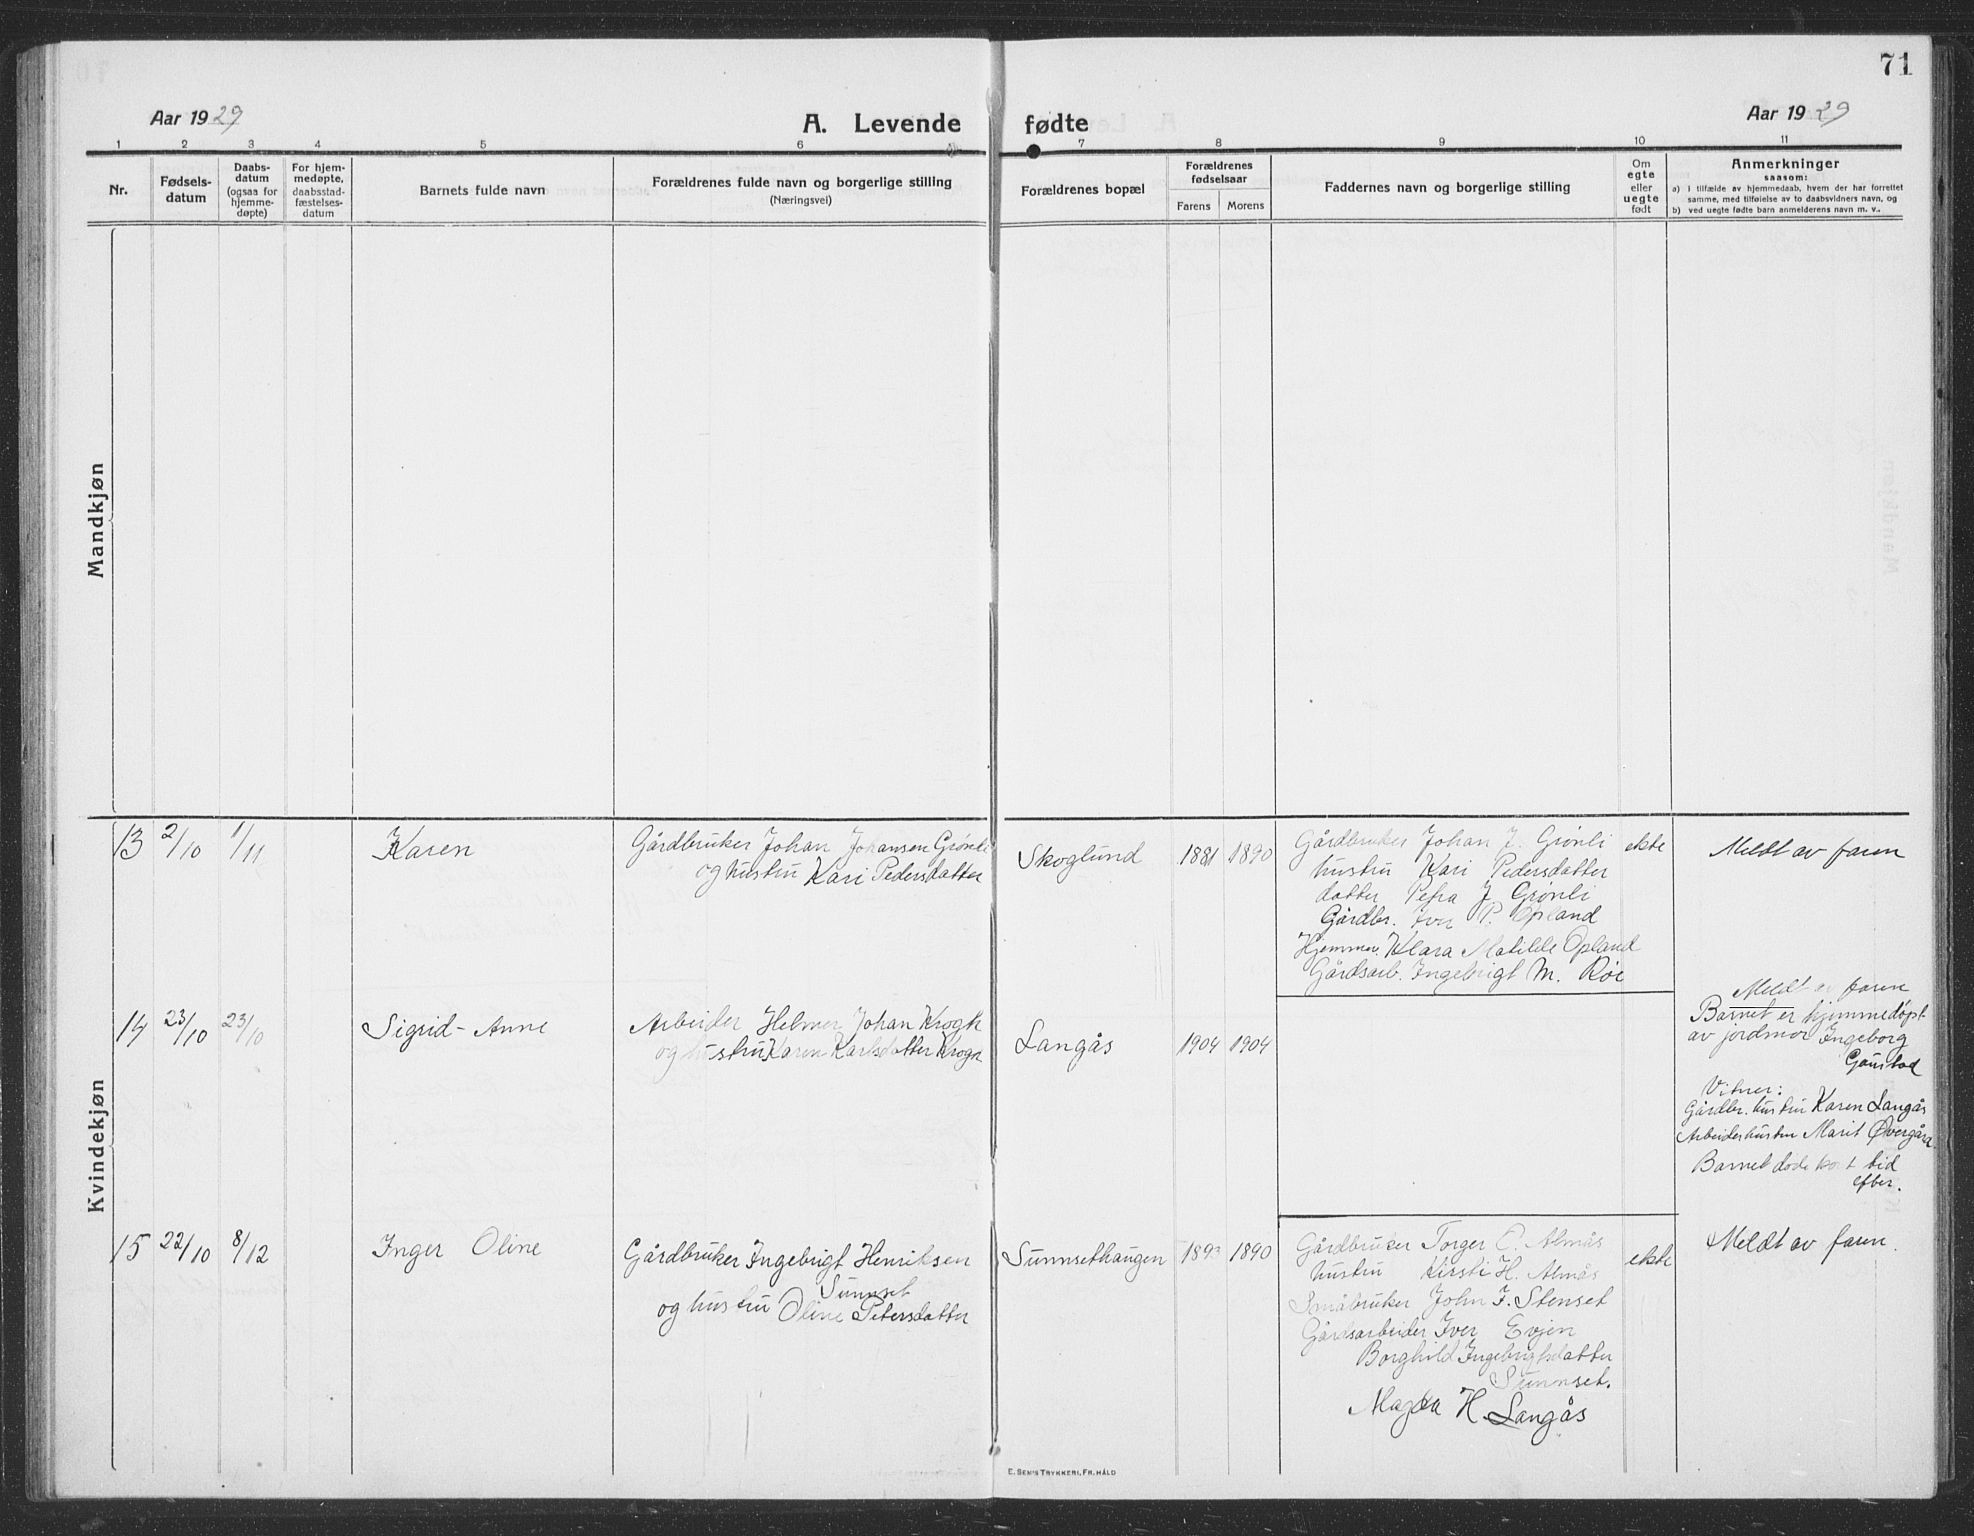 71
Aar 1929
A. Levende
fødte
Aar 1929
1 2 3 4 5 6 7 8 9 10 11
Nr.
Fødsels-
datum
Daabs-
datum
(ogsaa for
hjemme-
døpte)
For hjem-
medøpte,
daabsstad-
fæstelses-
datum
Barnets fulde navn
Forældrenes fulde navn og borgerlige stilling
(Næringsvei)
Forældrenes bopæl
Forældrenes
fødselsaar
Farens Morens
Faddernes navn og borgerlige stilling
Om
egte
eller
uegte
født
Anmerkninger
saasom:
a) i tilfælde av hjemmedaab, hvem der har forrettet
samme, med tilføielse av to daabsvidners navn, og
b) ved uegte fødte barn anmelderens navn m. v..
Mandkjøn
Kvindekjøn
13 2/10 1/11 Karen
Gårdbruker Johan Johansen Grønli
og hustru Kari Pedersdatter
Skoglund 1881 1890
Gårdbruker Johan J. Grønli
hustru Kari Pedersdatter
datter Petra J Grønli
Gårdbr. Iver P. Opland
Hjemmev. Klara Matilde Opland
Gårdsarb. Ingebrigt M. Røe
ekte
Meldt av faren
14 23/10 23/10 Sigrid-Anne
Arbeider Helmer Johan Krogh
og hustru Karen Karlsdatter Krogh
Langås 1904 1904
Meldt av faren
Barnet er hjemmedøpt
av jordmor Ingeborg
Gaustad
Vitner:
Gårdbr. hustru Karen Langås
Arbeiderhustru Marit Øvergård
Barnet døde kort tid
efter.
15 22/10 8/12 Inger Oline
Gårdbruker Ingebrigt Henriksen
Sunnset
og hustru Oline Petersdatter
Sunnsethaugen 1893 1890
Gårdbruker Torger O. Almås
hustru Kirsti H. Almås
Småbruker John F. Stenset
Gårdsarbeider Iver Evjen
Borghild Ingebrigtsdatter
Sunnset.
Magda H. Langås
ekte
Meldt av faren.
E. SEM'S TRYKKERI, FR.HALD